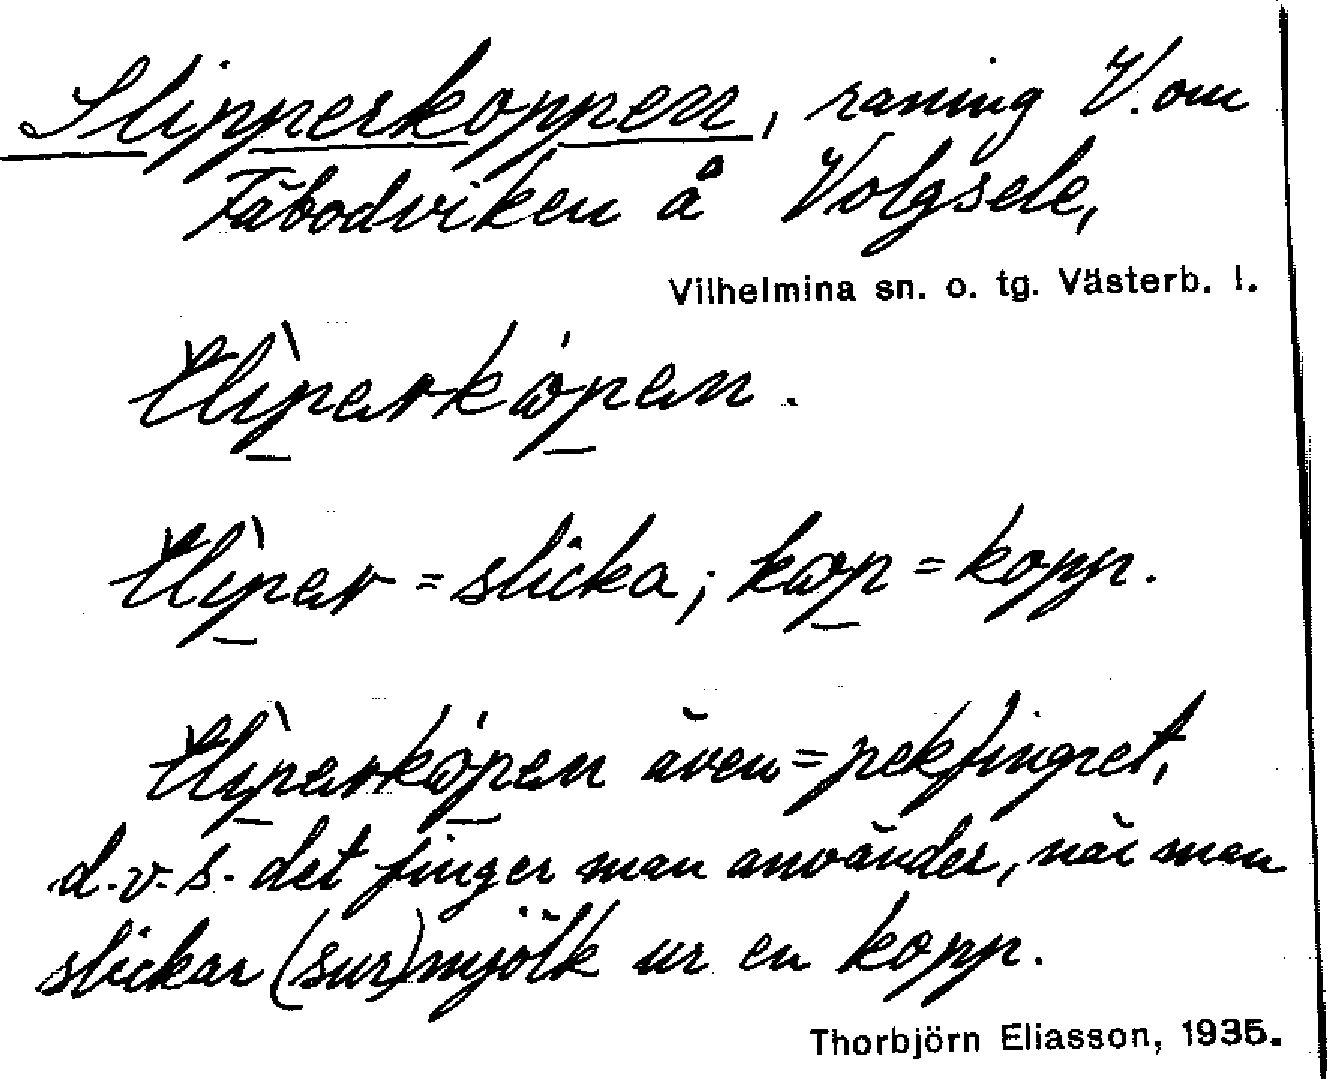 Slipperkoppen, raning V. om
Fäbodviken å Volgsele,
Vilhelmina sn. o. tg. Västerb. l.
= slicka; = kopp.
även = pekfingret,
d.v.s. det finger man använder, när man
slickar (sur)mjölk ur en kopp.
Thorbjörn Eliasson, 1935.